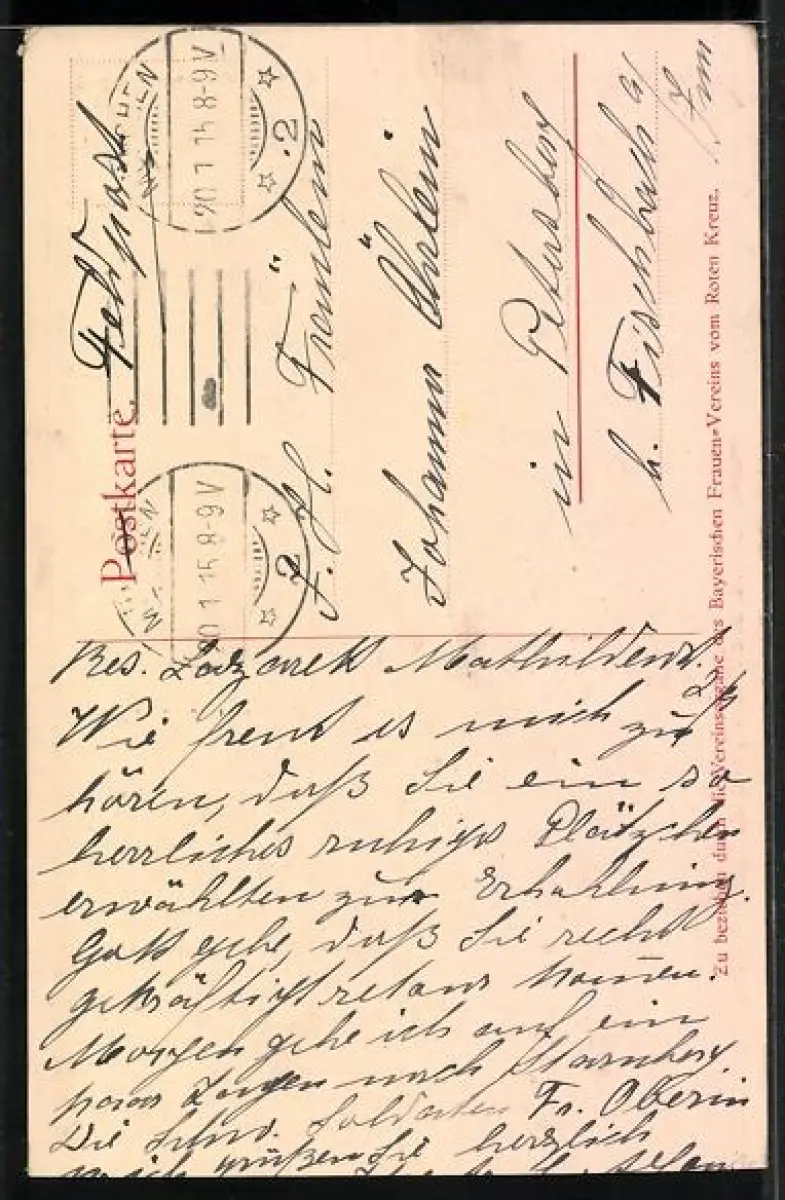 Postkarte.
Feldpost
MÜNCHEN
20 1 15 8-9 V
2
MÜNCHEN
20 1 15 8-9 V
2
Fräulein
Johanna
in Petersberg
b. Fischbach a/
Inn
Zu beziehen durch die Vereinsorgane des Bayerischen Frauen-Vereins vom Roten Kreuz.
Res. Lazarett
Wie freut es mich zu
hören, daß Sie ein so
herrliches ruhiges Plätzchen
erwählten zur Erhohlung.
Gott gebe, daß Sie recht
gekräftigt retour kommen.
Morgen gehe ich auf ein
paar nach Starnberg.
Die Soldaten Fr. Oberin
grüßen Sie herzlich